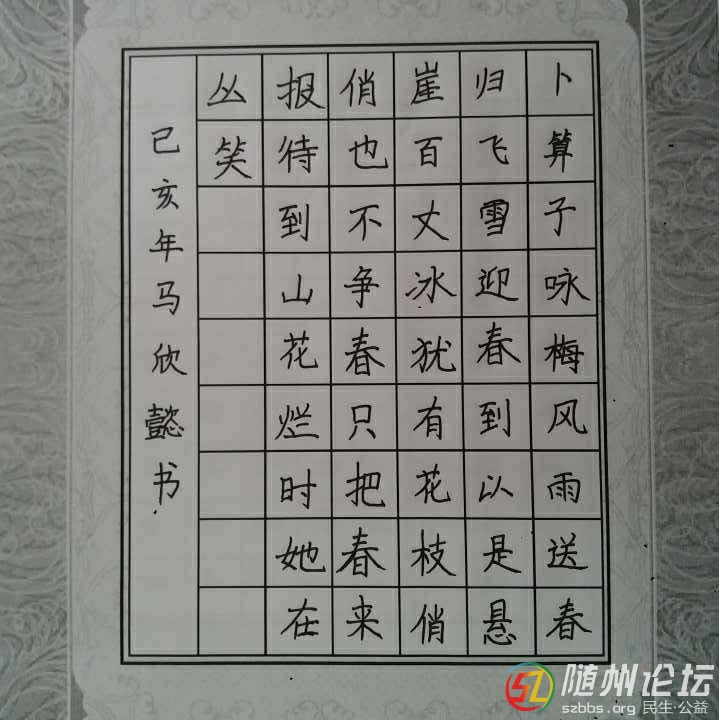 卜算子咏梅风雨送春
归飞雪迎春到以是悬
崖百丈冰犹有花枝俏
俏也不争春只把春来
报待到山花烂时她在
丛笑
己亥年马欣懿书
随州论坛
szbbs.org 民生·公益